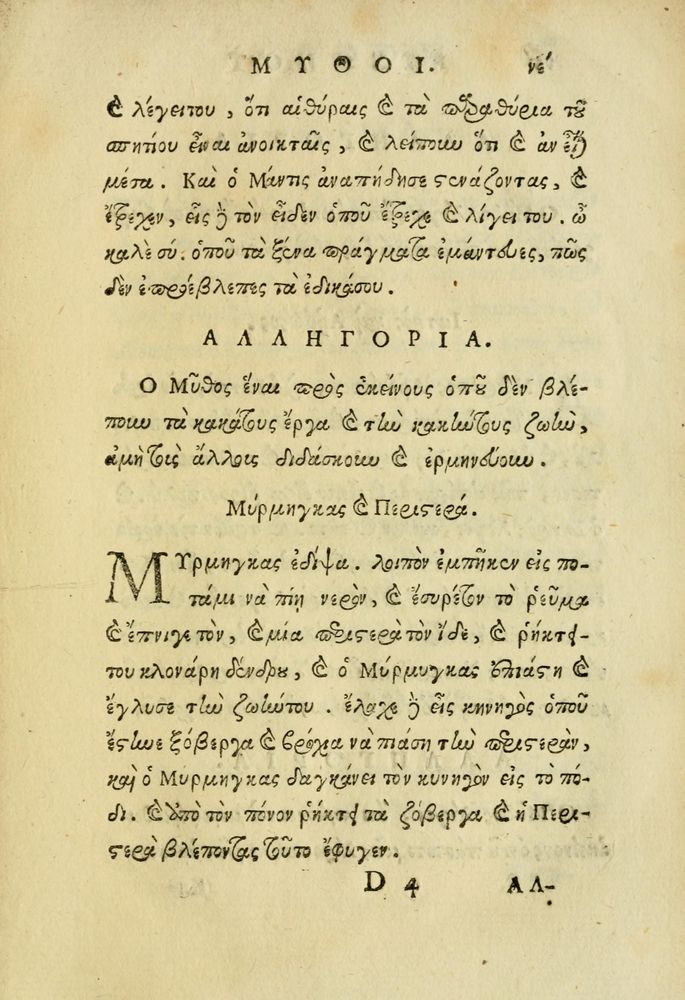 ΜΥΘΟΙ. νε΄
ϗ λέγει του, ὅτι αἱ θύραις ϗ τὰ παραθύρια τοῦ
σπητίου εἶναι ἀνοικταῖς, ϗ λείπουν ὅτι ϗ ἂν
μέσα. Καὶ ὁ Μάντις ἀναπήδησε στενάζοντας, ϗ
ἔτρεχεν, εἷς δὲ τὸν εἶδεν ὁποῦ ἔτρεχε ϗ λίγει του. ὦ
καλὲ σύ. ὁποῦ τὰ ξένα πράγματα ἐμάντευες, πῶς
δὲν ἐπρόβλεπες τὰ ἐδικάσου.
ΑΛΛΗΓΟΡΙΑ.
Ο Μῦθος ἕναι πρὸς ἐκείνους ὁποῦ δὲν βλέ-
πουν τὰ κακάτους ἔργα ϗ τὴν κακήτους ζωὴν,
ἀμὴ τοὶς ἄλλοις διδάσκουν ϗ ερμηνεύουν.
Μύρμηγκας ϗ Περιστερά.
ΜΥΡμηγκας ἐδίψα. λοιπὸν ἐμπῆκεν εἰς πο-
τάμι νὰ πίη νερὸν, ϗ ἔσυρέτον τὸ ῥεῦμα
ϗ ἔπνιγε τὸν, ϗ μία περιστερὰ τὸν ἴδε, ϗ ῥήκτει-
του κλονάρη δένδρου, ϗ ὁ Μύρμυγκας ἐπιάστη ϗ
ἔγλυσε τὴν ζωήτου. ἔλαχε δὲ εἷς κηνηγὸς ὁποῦ
ἔστηνε ξόβεργα ϗ βρόχα νὰ πιάση τὴν περιστερὰν,
καὶ ὁ Μυρμηγκας δαγκάνει τὸν κυνηγὸν εἰς τὸ πό-
δι. ϗ ἀπὸ τὸν πόνον ῥήκτει τὰ ζόβεργα ϗ ἡ Περι-
στερὰ βλέποντας τοῦτο ἔφυγεν.
D 4 ΑΛ-